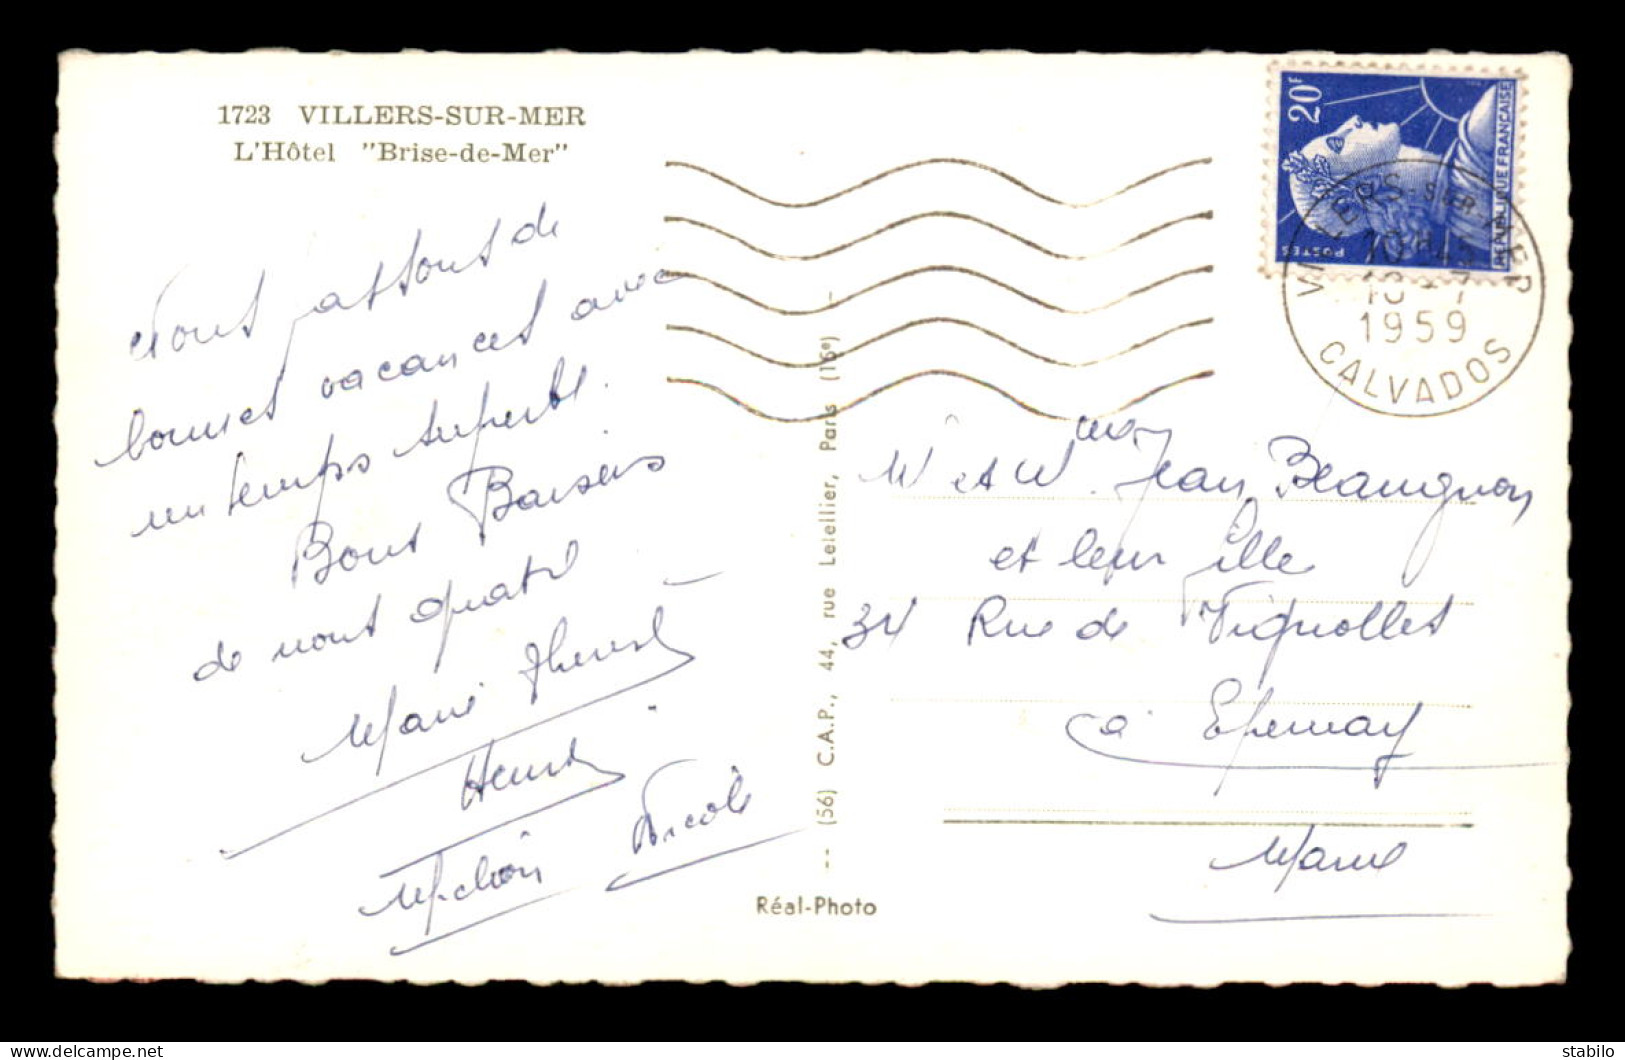 1723 VILLERS-SUR-MER
L'Hôtel "Brise-de-Mer"
Nous passons de
bonnes vacances avec
un temps superbe.
Bons Baisers
de nous quatre
Marie Thérèse
Henri
Nicole
-- (56) C.A.P., 44, rue Lelellier, Paris (15e) -
Réal-Photo
20F
POSTES
REPUBLIQUE FRANÇAISE
VILLERS-SUR-MER
10H45
1959
CALVADOS
Mr et Mme Jean Beaugnon
et leur fille
34 Rue de Vignolles
à Epernay
Marne